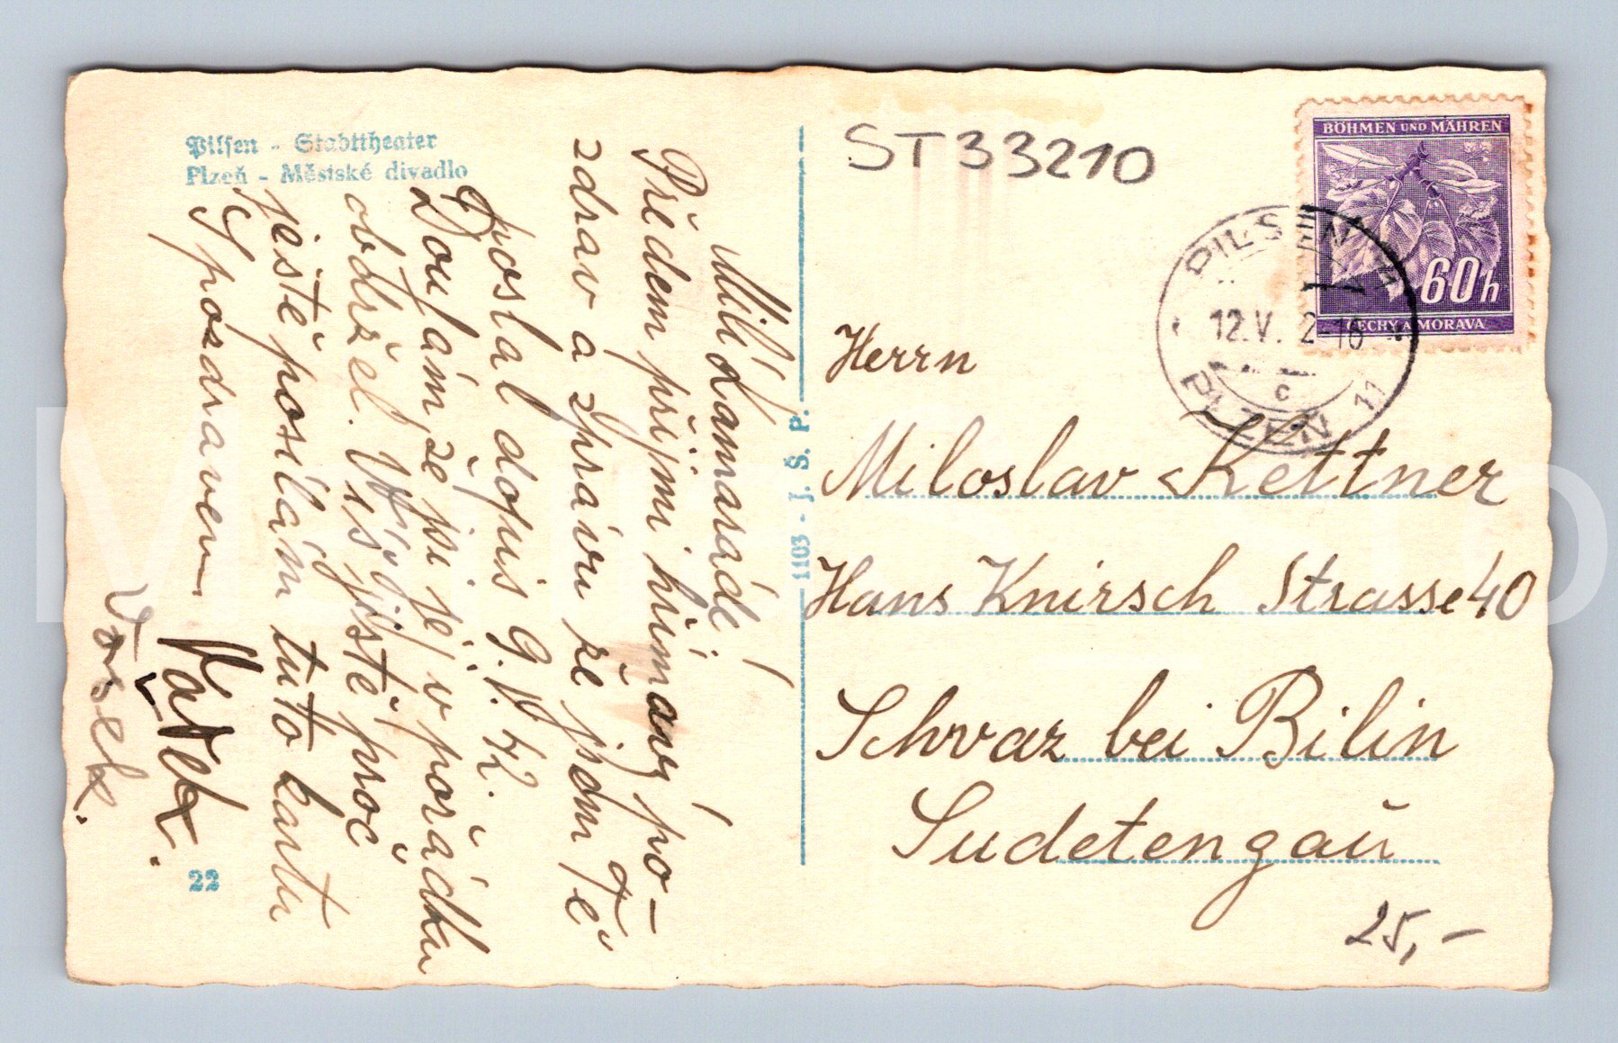 Pilsen - Stadttheater
Plzeň - Městské divadlo
Milý kamaráde!
Předem přijmi hřímavý po-
zdrav a zprávu že jsem Tě
poslal dopis 9.V.42.
Doufám, že jsi jej v pořádku
obdržel. Víš jistě proč
ještě posílám tuto kartu
S pozdravem
Vašek.
22
1103 - J. Š. P.
ST33210
BÖHMEN UND MÄHREN
60h
ČECHY A MORAVA
PILSEN 11
12.V. 2-16
c
PLZEŇ 11
Herrn
Miloslav Kettner
Hans Knirsch Strasse 40
Schvaz bei Bilin
Sudetengau
25,-